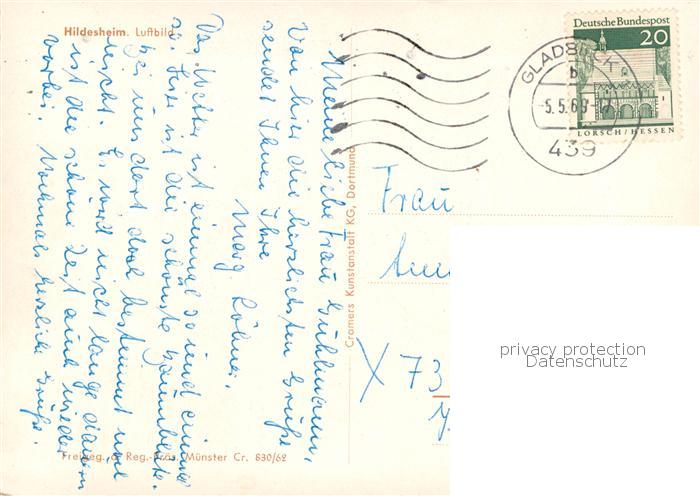 Hildesheim. Luftbild
Meine liebe Frau
von hier die herzlichsten Grüße
sendet Ihnen Ihre
Marg. Röhne.
Das Wetter ist einmal so und einmal
so. Hier ist die schönste Baumblüte.
bei uns dort doch bestimmt und
nicht. Es wird nicht lange dauern
ist die schöne Zeit auch wieder
vorbei. Nochmals herzliche Grüße.
Freigeg. d. Reg.-Präs. Münster Cr. 830/62
Cramers Kunstanstalt KG, Dortmund
Deutsche Bundespost
20
LORSCH/HESSEN
GLADBECK
b
-5.5.69-17
439
Frau
X 73
privacy protection
Datenschutz